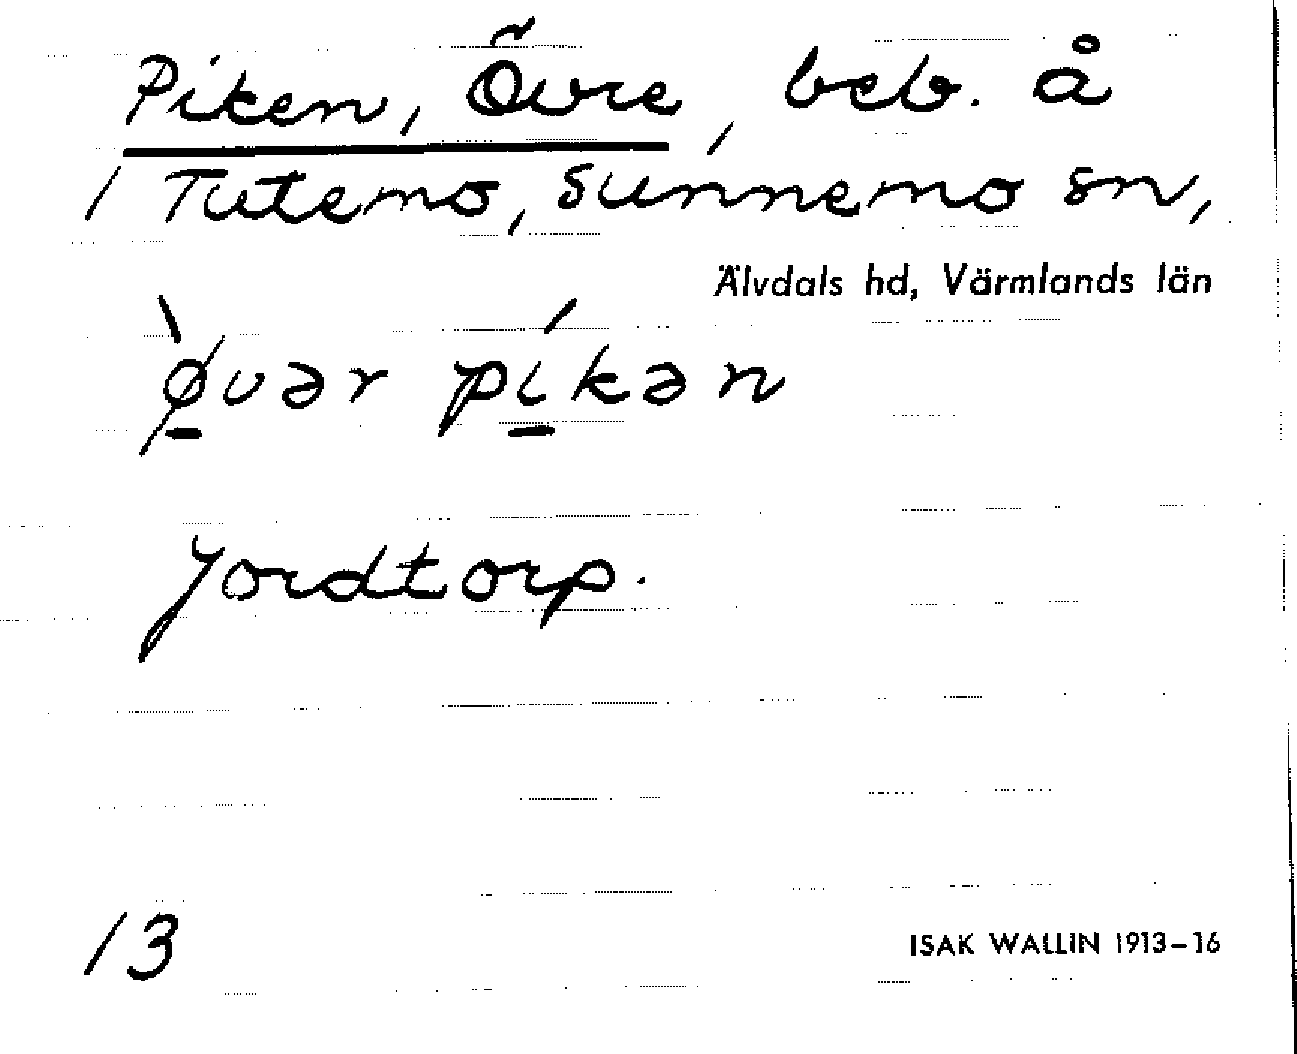 Piken, Övre, beb. å
1 Tutemo, Sunnemo sn,
Älvdals hd, Värmlands län
ø̱̀vər pí̱kən
Jordtorp.
13
ISAK WALLIN 1913–16